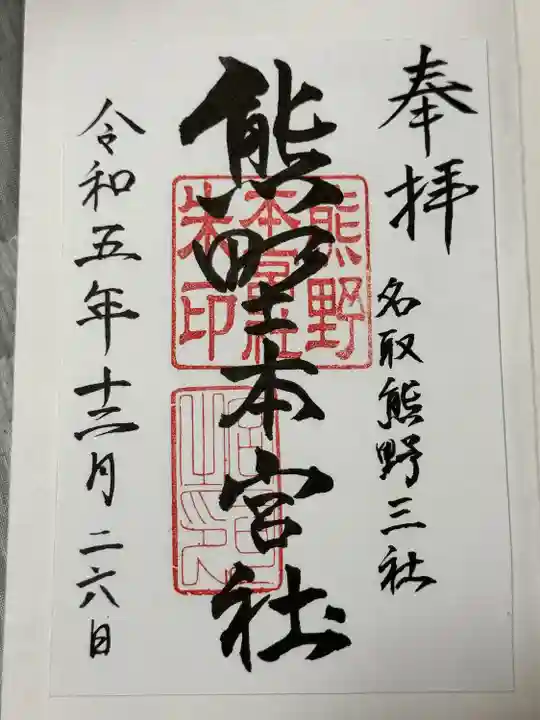 奉拝
名取熊野三社
熊野本宮社
熊野
本宮社
朱印
令和五年十二月二六日